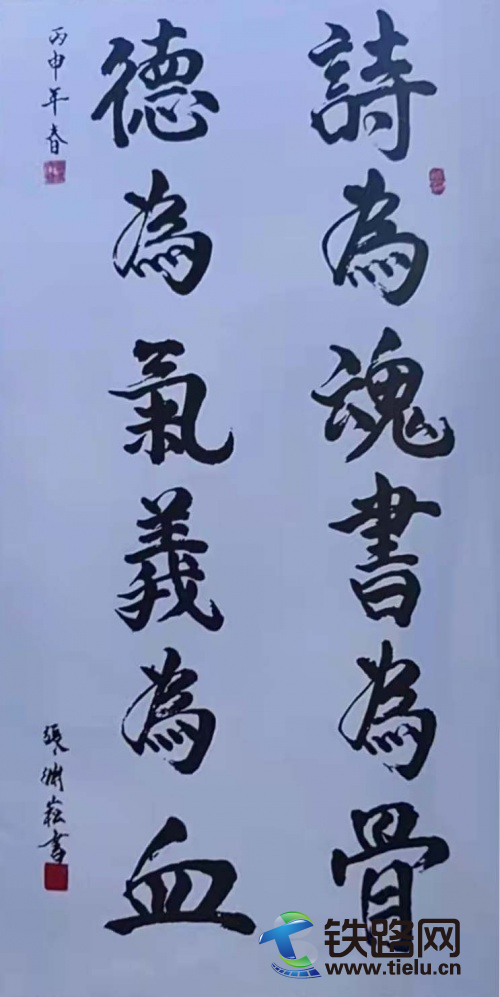 詩為魂書為骨
德為氣義為血
丙申年春
張衛崧書
铁路网
www.tielu.cn